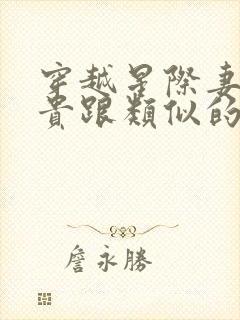 穿越星際妻
貴跟類似的
詹永勝